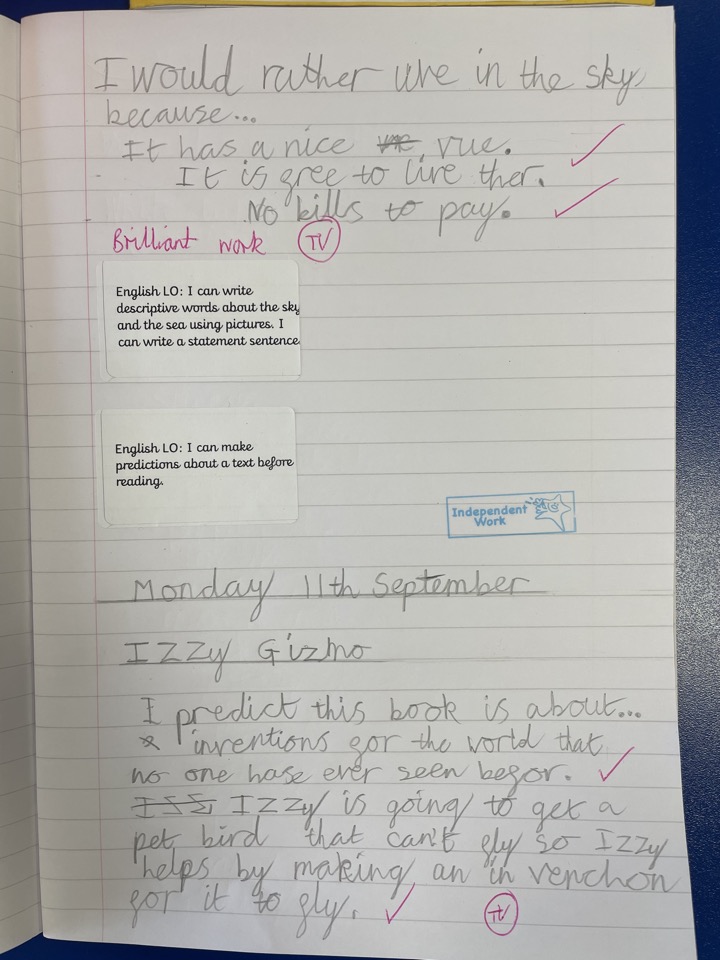 I would rather live in the sky
because...
It has a nice vue.
It is free to live ther.
No bills to pay.
Brilliant work TV
English LO: I can write
descriptive words about the sky
and the sea using pictures. I
can write a statement sentence
English LO: I can make
predictions about a text before
reading.
Independent
Work
Monday 11th September
IZZy Gizmo
I predict this book is about...
inventions for the world that
no one hase ever seen befor.
IZZy is going to get a
pet bird that can't fly so IZZy
helps by making an in venchon
for it to fly.
TV